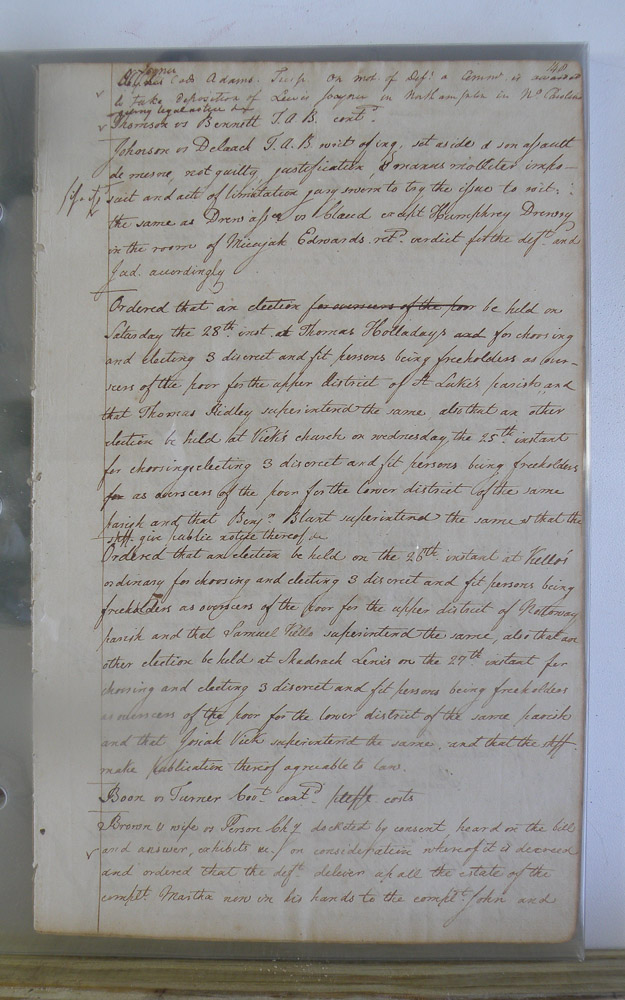 48
Joyner
vs Adams. Tresp. On mot. of Deft. a Comm. is awarded
to take deposition of Lewis Joyner in Northampton in No. Carolina
giving legal notice &c
Thomson vs Bennett T. A. B. contd.
Johnson vs Delaach T. A. B. writ of inq. set aside & son assault
de mesne, not guilty, justification, & manus molliter impo-
suit and act of limitation jury sworn to try the issue to wit:
the same as Drew assee vs Bland except Humphrey Drewry
in the room of Micajah Edwards. retd. verdict for the deft. and
Jud. accordingly
Ordered that an election for overseers of the poor be held on
Saturday the 28th. inst. at Thomas Holladays and for choosing
and electing 3 discreet and fit persons being freeholders as over-
seers of the poor for the upper district of St Luke's parish, and
that Thomas Ridley superintend the same also that an other
election be held at Vick's church on wednesday the 25th. instant
for choosing & electing 3 discreet and fit persons being freeholders
for as overseers of the poor for the lower district of the same
parish and that Benjn. Blunt superintend the same & that the
shff. give public notice thereof &c
Ordered that an election be held on the 26th. instant at Kello's
ordinary for choosing and electing 3 discreet and fit persons being
freeholders as overseers of the poor for the upper district of Nottoway
parish and that Samuel Kello superintend the same, also that an
other election be held at Shadrach Lewis on the 27th instant for
choosing and electing 3 discreet and fit persons being freeholders
as overseers of the poor for the lower district of the same parish
and that Josiah Vick superintend the same, and that the shff.
make publication thereof agreeable to law.
Boon vs Turner Covt. contd. pltffs costs
Brown & wife vs Person Chy docketed by consent, heard on the bill
and answer, exhibits &c / on consideration whereof it is decreed
and ordered that the deft. deliver up all the estate of the
complt. Martha now in his hands to the complt. John and